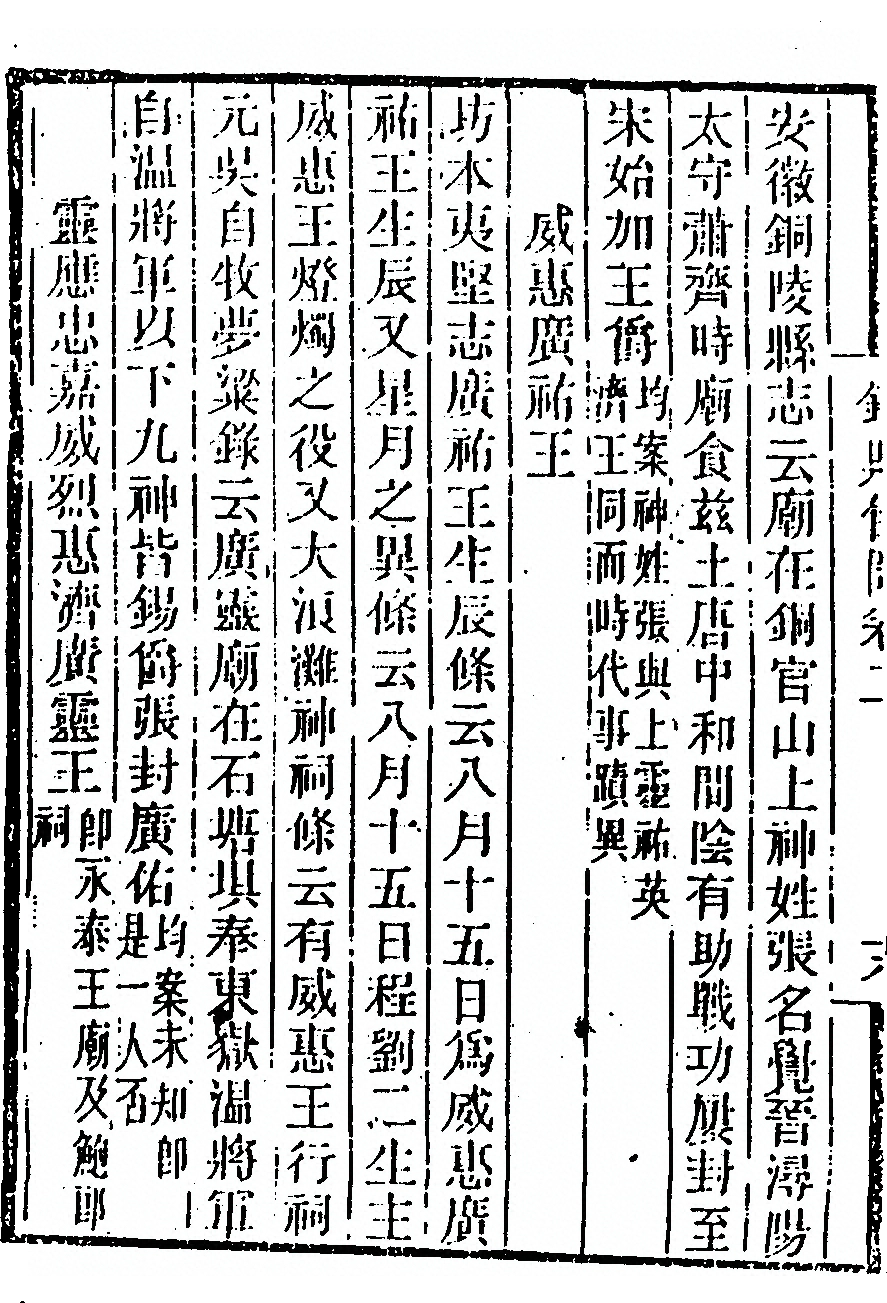 安徽銅陵縣志云廟在銅官山上神姓張名覺晉潯陽
太守蕭齊時廟食兹土唐中和間陰有助戰功屢封至
宋始加王爵均案神姓張與上靈祐英
濟王同而時代事蹟異
威惠廣祐王
坊本夷堅志廣祐王生辰條云八月十五日爲威惠廣
祐王生辰又星月之異條云八月十五日程劉二生主
威惠王燈燭之役又大浪灘神祠條云有威惠王行祠
元吳自牧夢粱錄云廣靈廟在石塘埧奉東嶽温將軍
自温將軍以下九神皆錫爵張封廣佑均案未知卽
是一人否
靈應忠嘉威烈惠濟廣靈王卽永泰王廟及鮑郎
祠